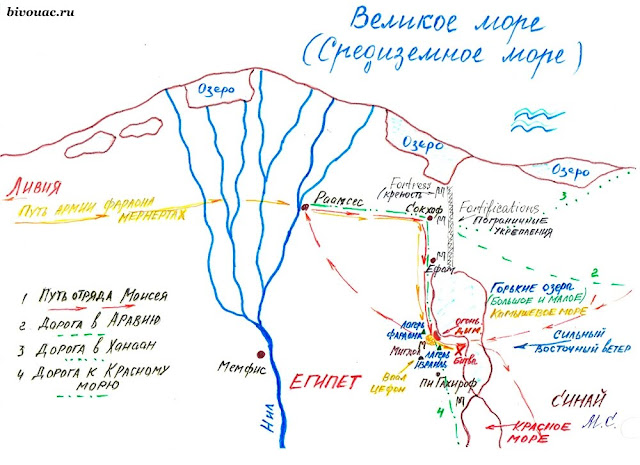 bivouac.ru
Великое море
(Средиземное море)
Озеро
Озеро
Озеро
Ливия
Путь армии фараона
Мернертах
Раамсес
Fortress
(крепость)
Сокхоф
Fortifications
Пограничные
укрепления
3
Ефам
2
Горькие озера
(большое и малое)
Камышевое море
1
1 Путь отряда Моисея
2 Дорога в Аравию
3 Дорога в Ханаан
4 Дорога к Красному
морю
Огонь
Дым
Лагерь
фараона
Сильный
восточный ветер
Мигдол
Лагерь
Израиль
Битва
Мемфис
Ваал
Цефон
Египет
Пи Гахироф
4
Синай
М.С.
Нил
Красное
море